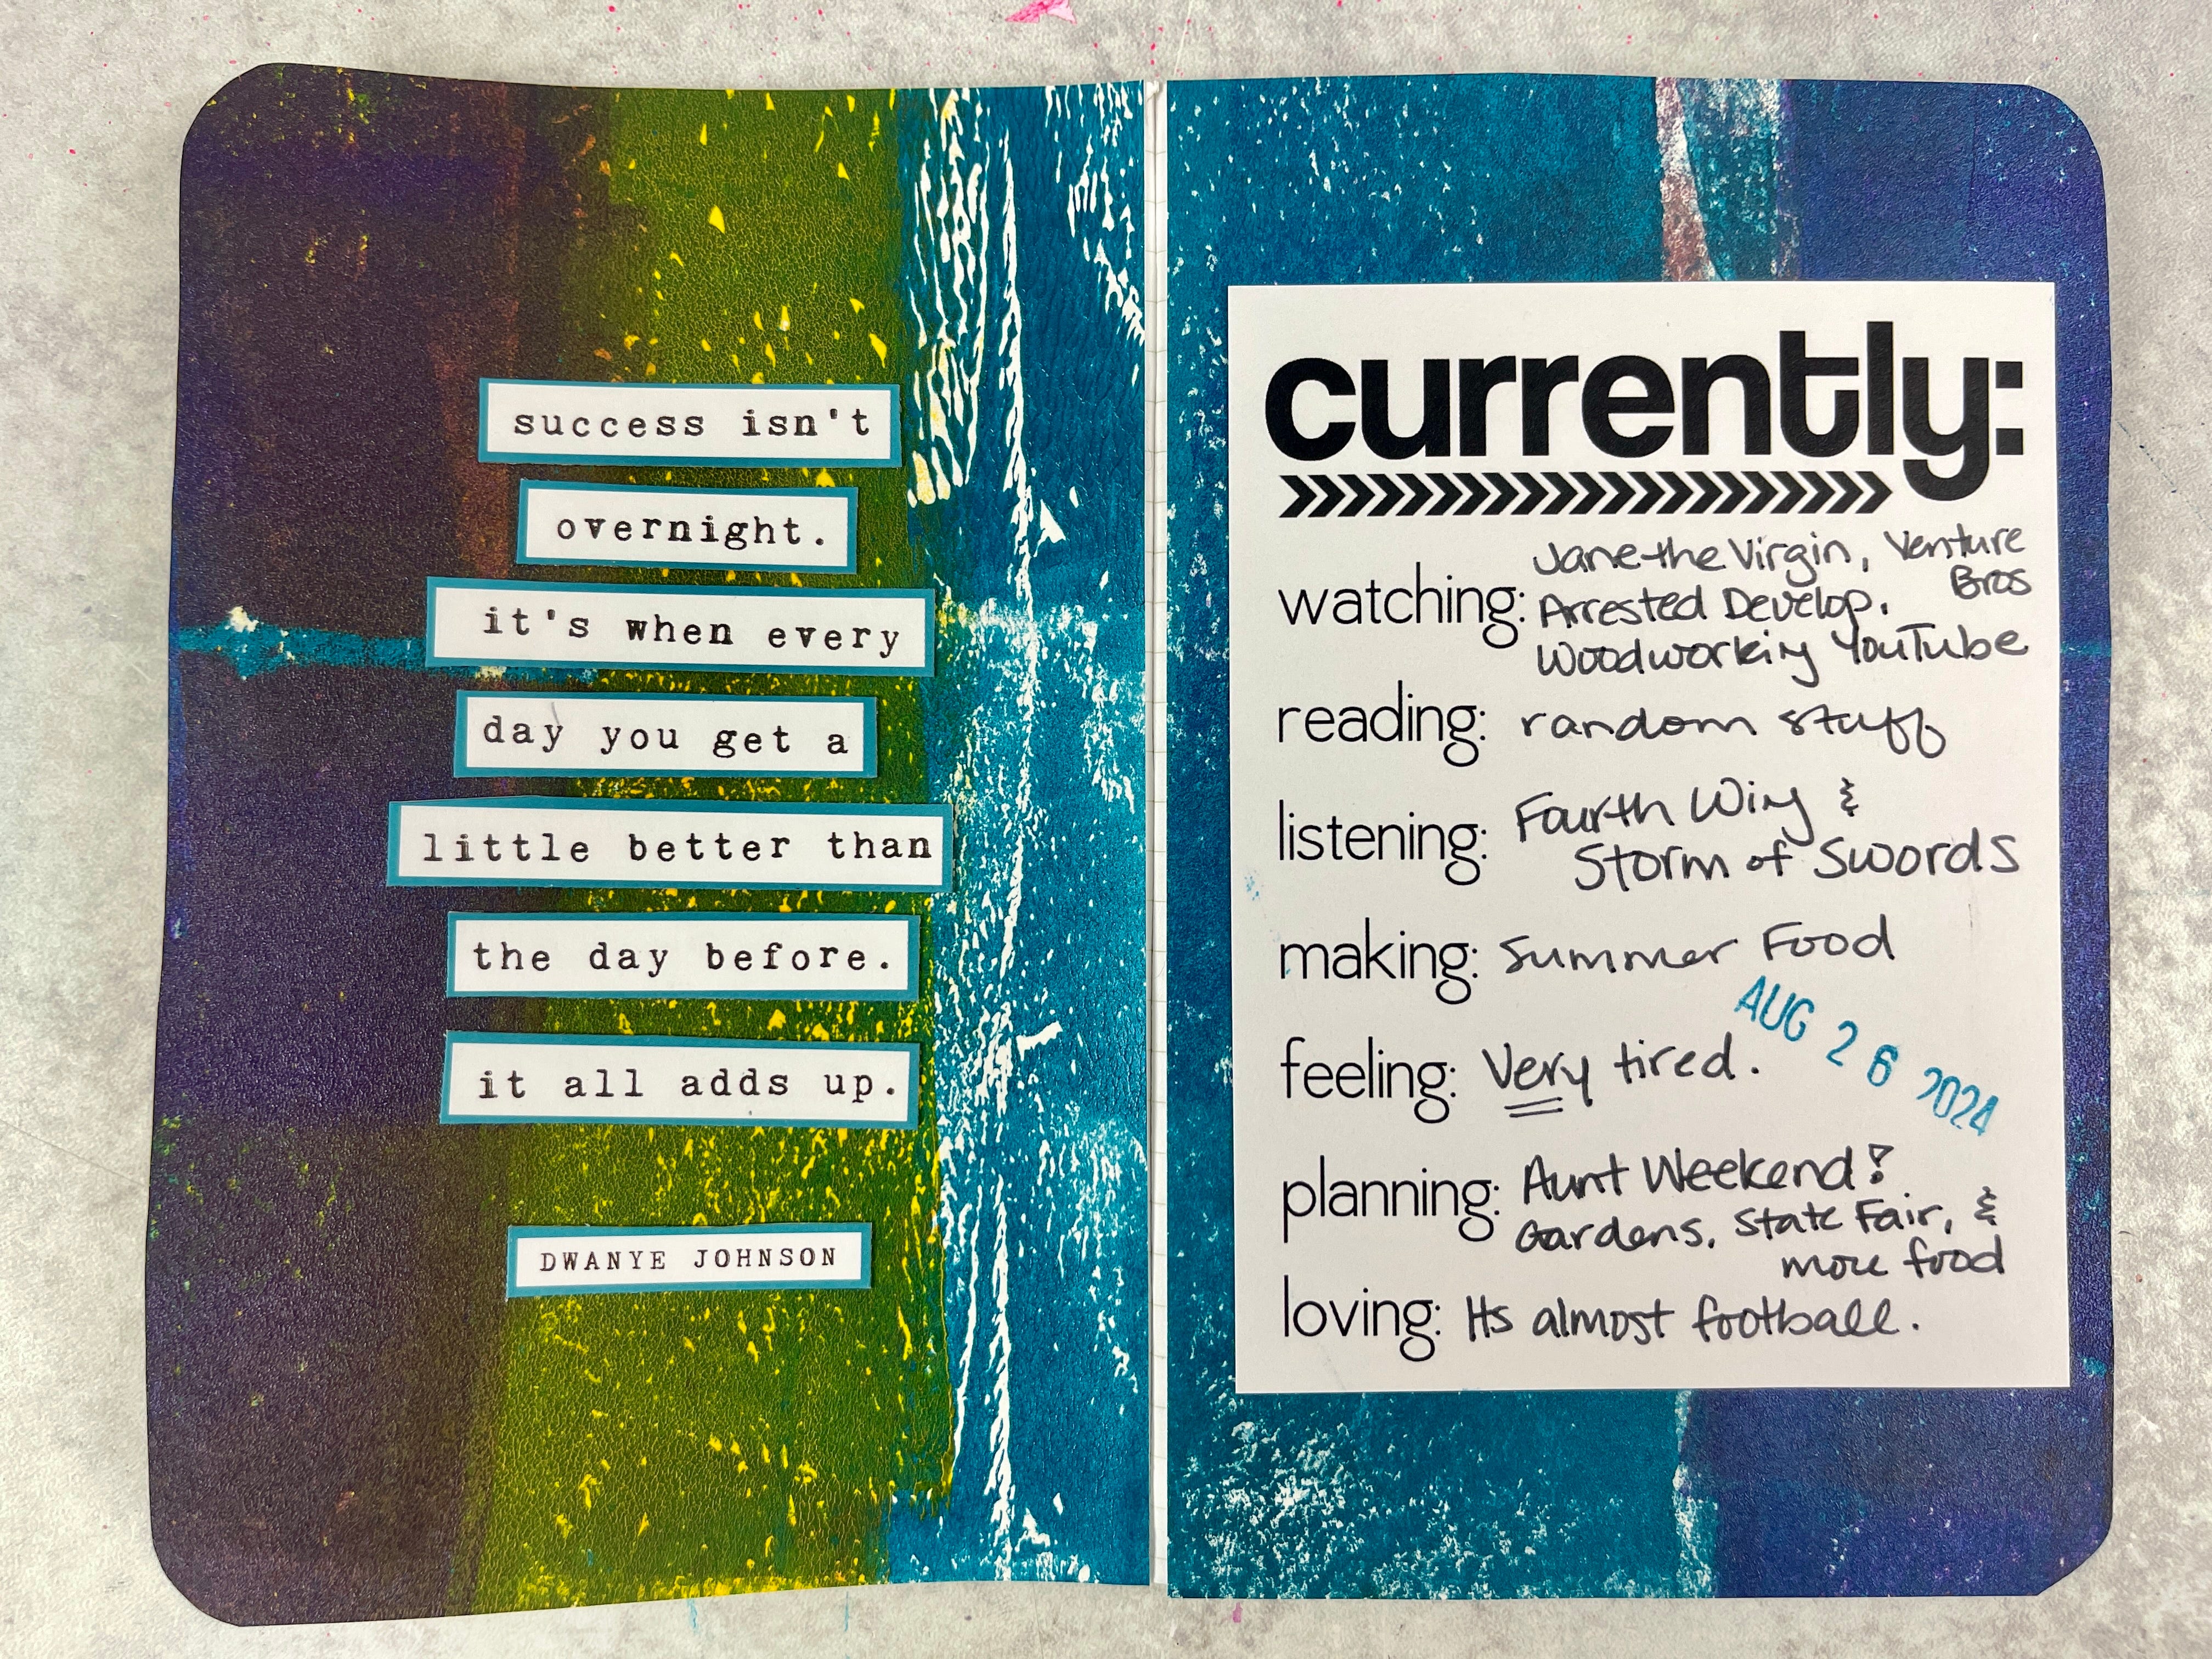 success isn't
overnight.
it's when every
day you get a
little better than
the day before.
it all adds up.
DWANYE JOHNSON
currently:
watching: Jane the Virgin, Venture Bros
Arrested Develop.
Woodworking YouTube
reading: random stuff
listening: Fourth Wing &
Storm of Swords
making: Summer Food
AUG 26 2024
feeling: Very tired.
planning: Aunt Weekend!
Gardens, State Fair, &
more food
loving: Its almost football.